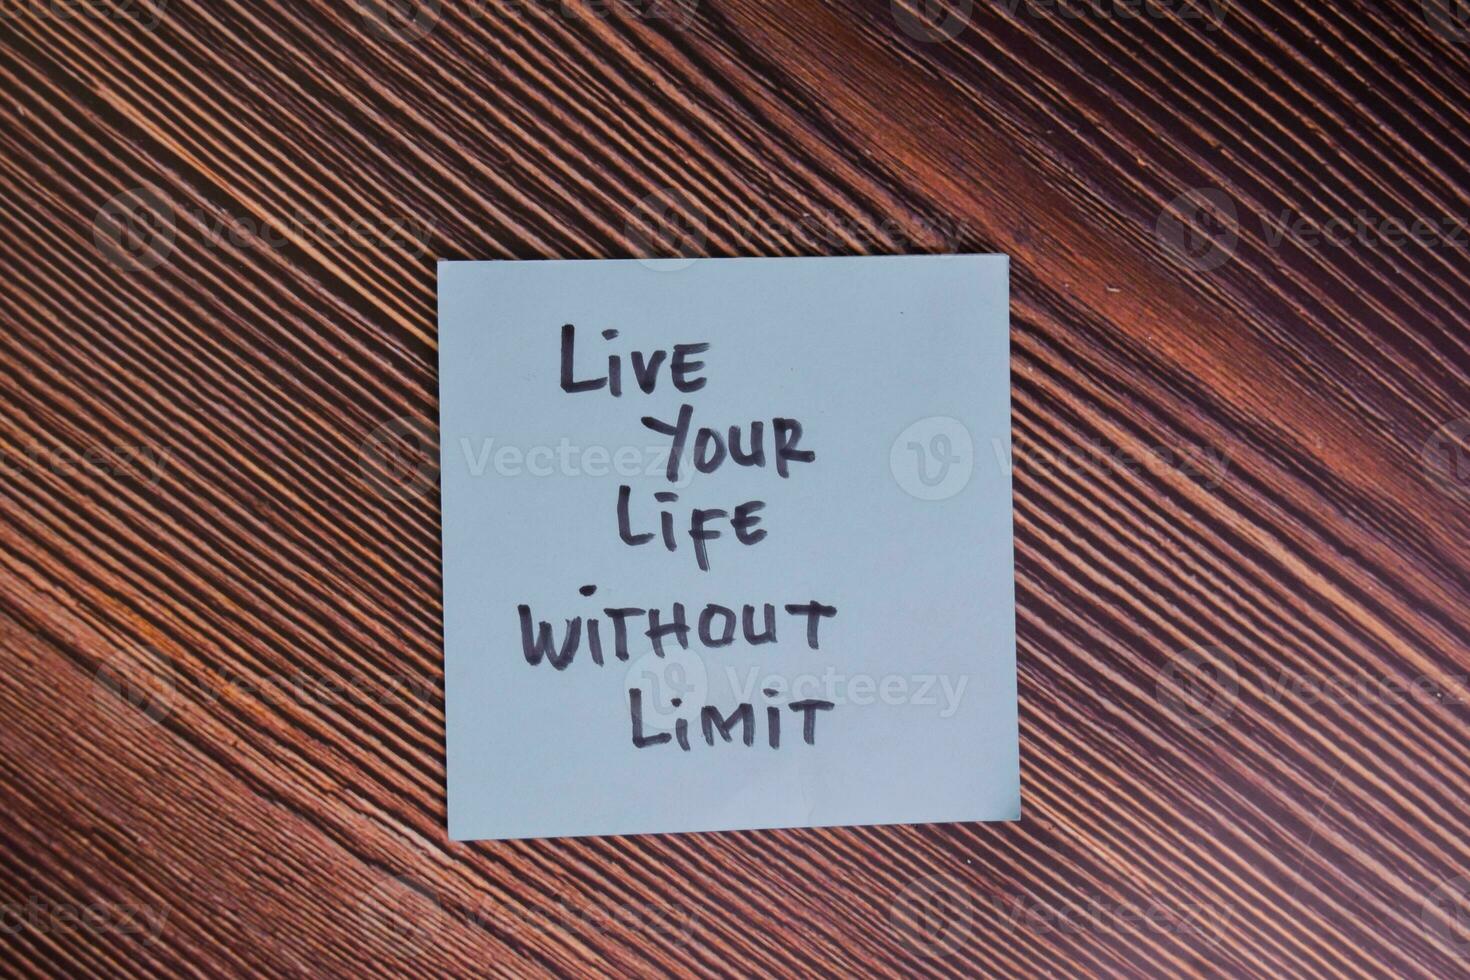 Live
Your
Life
Without
Limit
Vecteezy